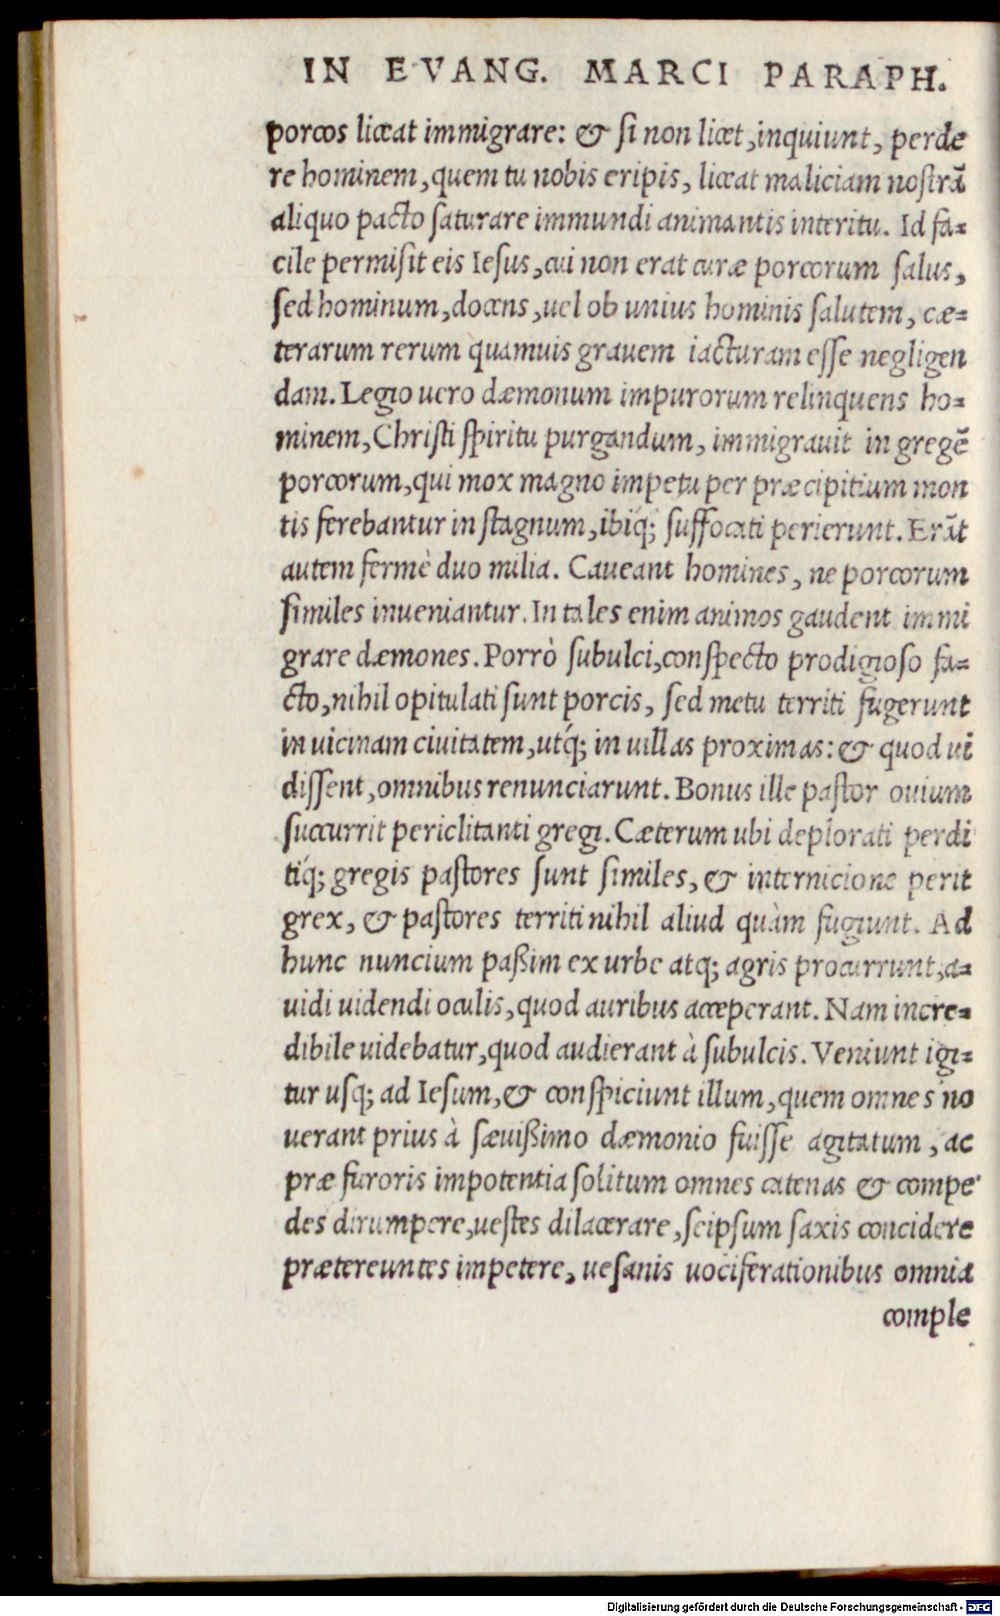 IN EVANG. MARCI PARAPH.
porcos liceat immigrare: & si non licet, inquiunt, perde
re hominem, quem tu nobis eripis, liceat maliciam nostrā
aliquo pacto saturare immundi animantis interitu. Id fa-
cile permisit eis Iesus, cui non erat curæ porcorum salus,
sed hominum, docens, uel ob unius hominis salutem, cæ-
terarum rerum quamuis grauem iacturam esse negligen
dam. Legio uero dæmonum impurorum relinquens ho-
minem, Christi spiritu purgandum, immigrauit in gregē
porcorum, qui mox magno impetu per præcipitium mon
tis ferebantur in stagnum, ibiq́; suffocati perierunt. Erāt
autem fermè duo milia. Caueant homines, ne porcorum
similes inueniantur. In tales enim animos gaudent immi
grare dæmones. Porrò subulci, conspecto prodigioso fa-
cto, nihil opitulati sunt porcis, sed metu territi fugerunt
in uicinam ciuitatem, utq́; in uillas proximas: & quod ui
dissent, omnibus renunciarunt. Bonus ille pastor ouium
succurrit periclitanti gregi. Cæterum ubi deplorati perdi
tiq́; gregis pastores sunt similes, & internicione perit
grex, & pastores territi nihil aliud quàm fugiunt. Ad
hunc nuncium paßim ex urbe atq; agris procurrunt, a-
uidi uidendi oculis, quod auribus acceperant. Nam incre-
dibile uidebatur, quod audierant à subulcis. Veniunt igi-
tur usq; ad Iesum, & conspiciunt illum, quem omnes no
uerant prius à sæuißimo dæmonio fuisse agitatum, ac
præ furoris impotentia solitum omnes catenas & compe
des dirumpere, uestes dilacerare, seipsum saxis concidere
prætereuntes impetere, uesanis uociferationibus omnia
comple
Digitalisierung gefördert durch die Deutsche Forschungsgemeinschaft - DFG